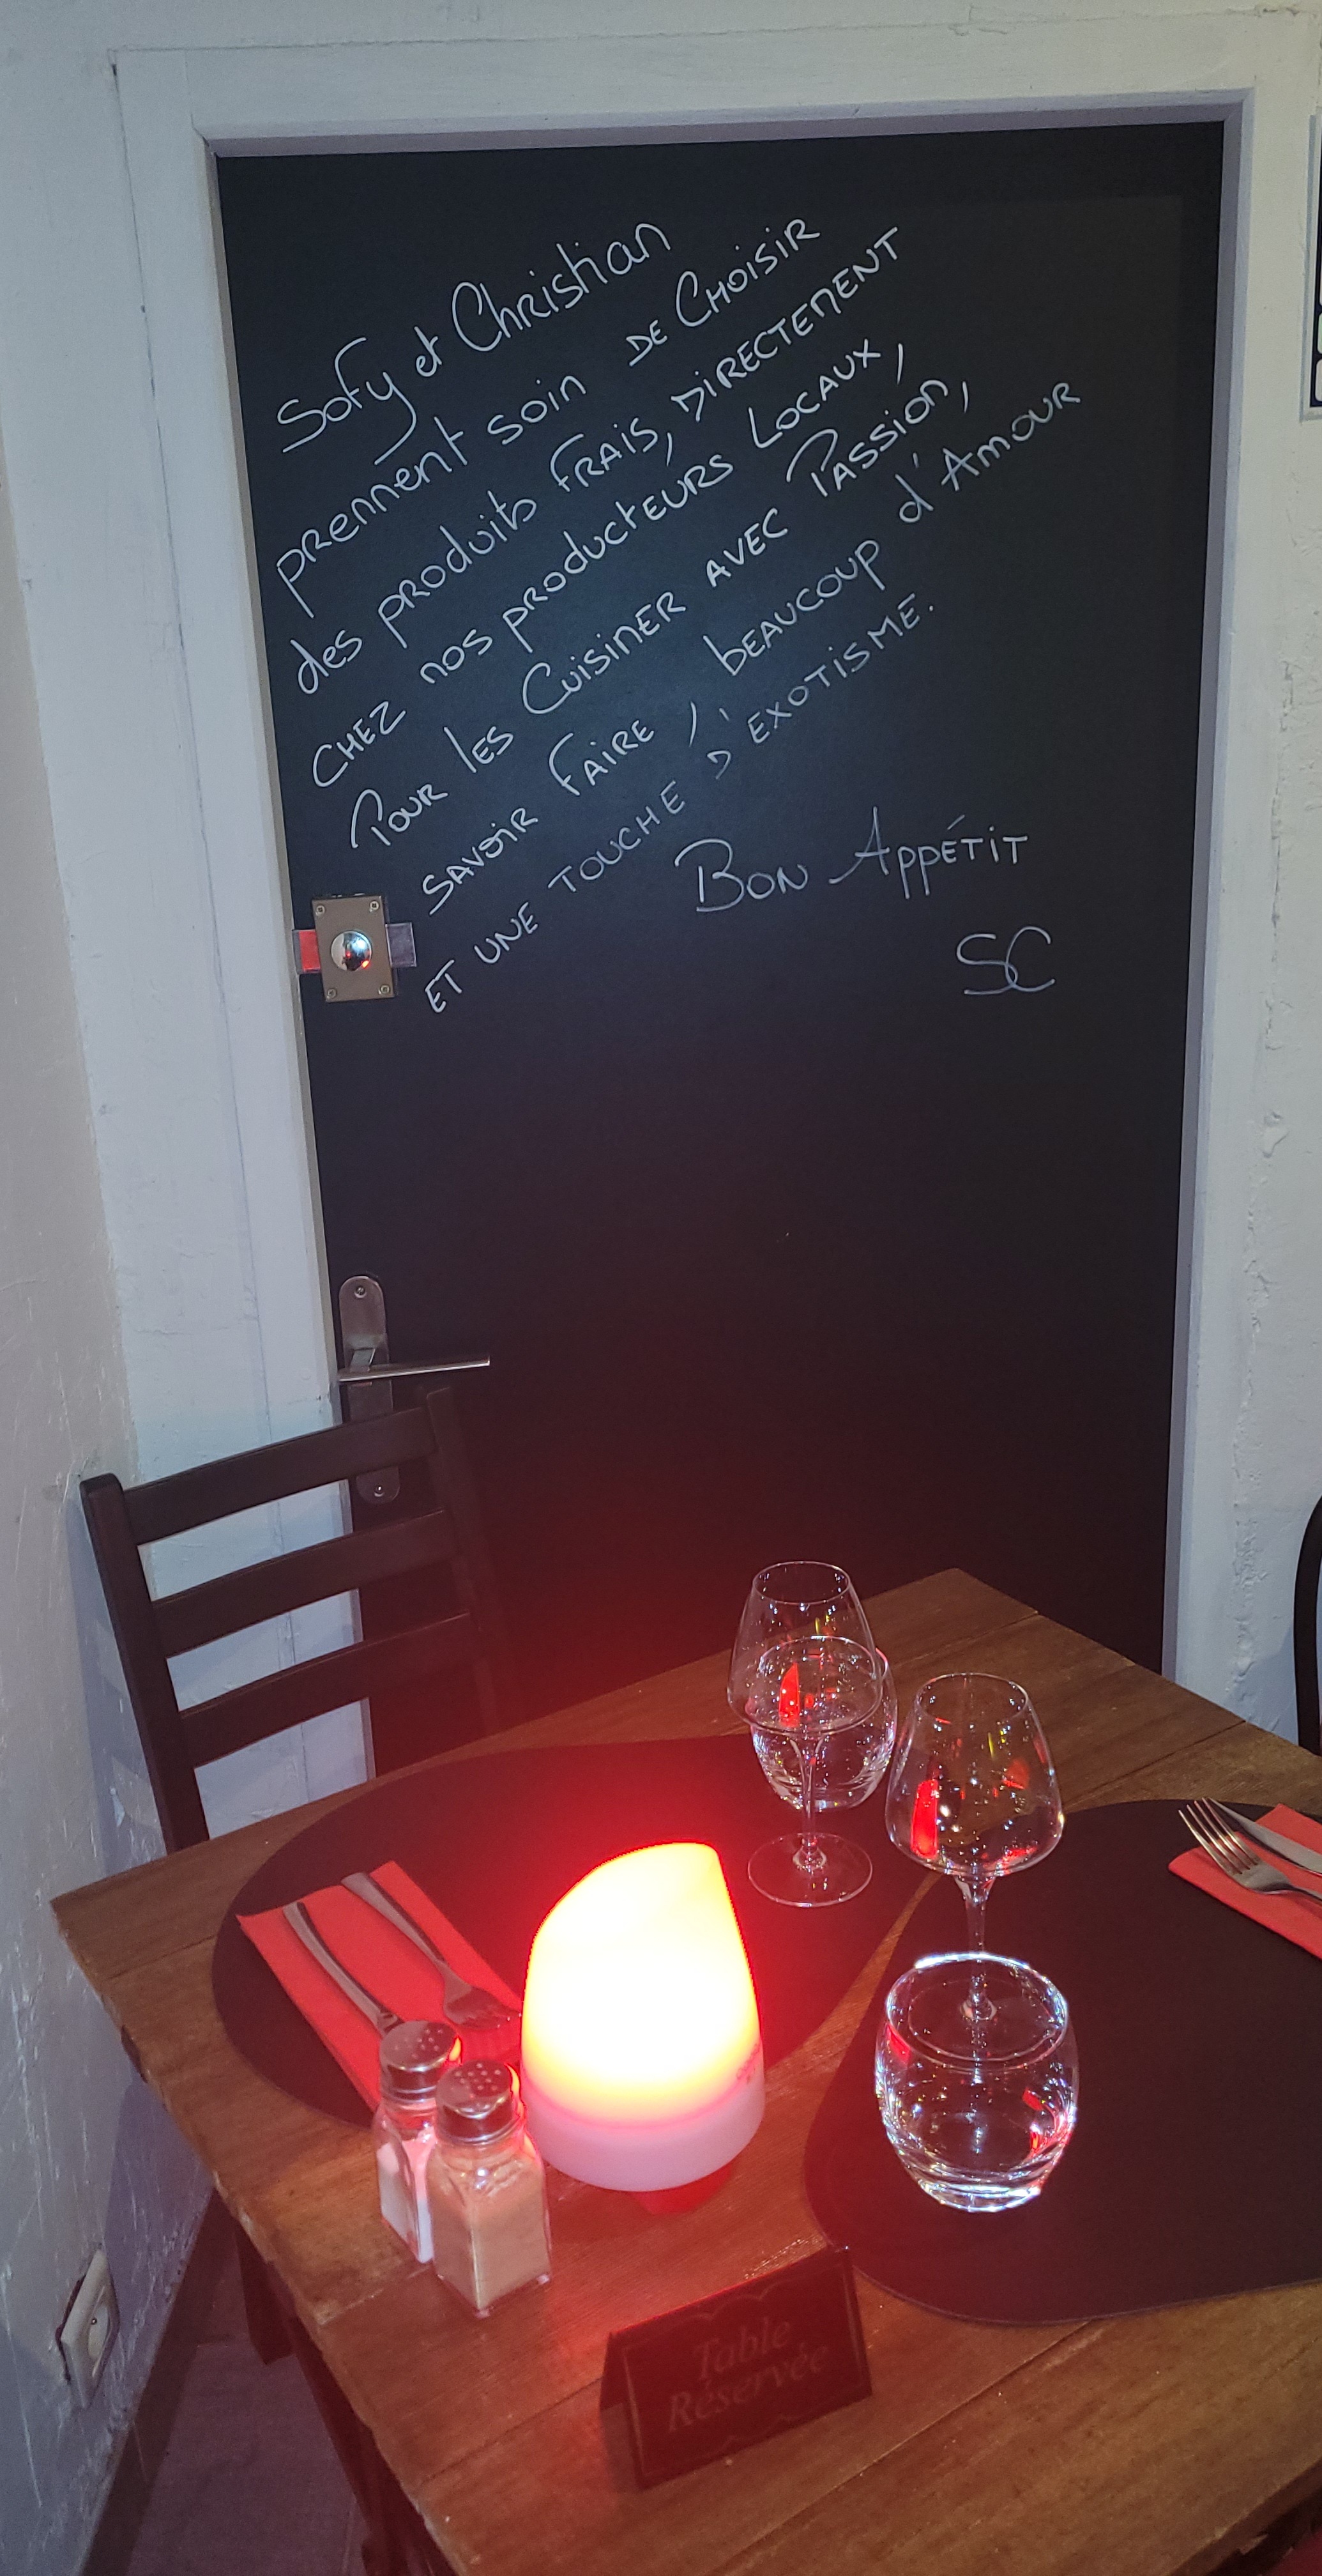 Sofy et Christian
prennent soin DE CHOISIR
des produits FRAIS, DIRECTEMENT
CHEZ nos producteurs LOCAUX,
Pour les Cuisiner avec Passion,
SAVOIR FAIRE, beaucoup d'Amour
ET UNE TOUCHE D'EXOTISME.
Bon Appétit
SC
Table
Réservée